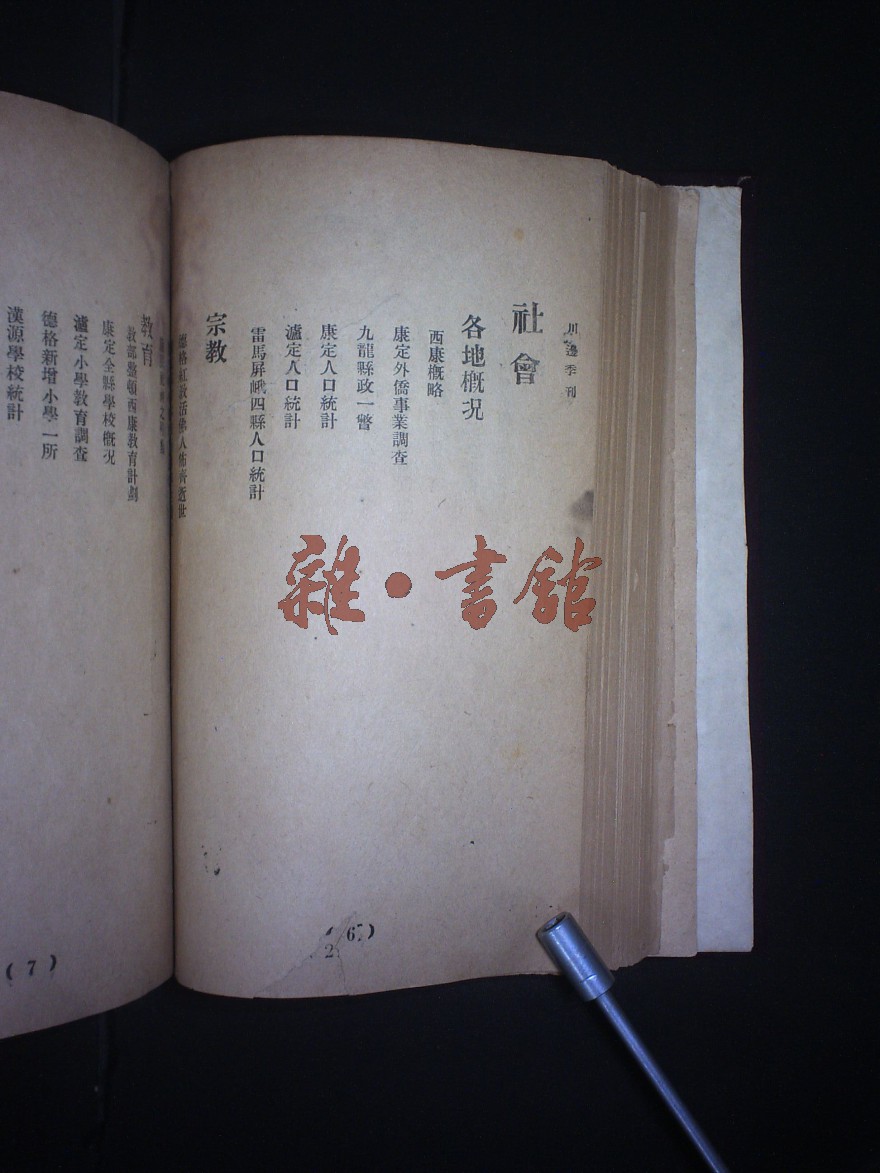 川邊季刊
社會
各地概況
西康概略
康定外僑事業調查
九龍縣政一瞥
康定人口統計
瀘定人口統計
雷馬屏峨四縣人口統計
宗教
德格紅教活佛人佈齊逝世
(6)
2
教育
教部整頓西康教育計劃
康定全縣學校概況
瀘定小學教育調查
德格新增小學一所
漢源學校統計
(7)
雜·書館